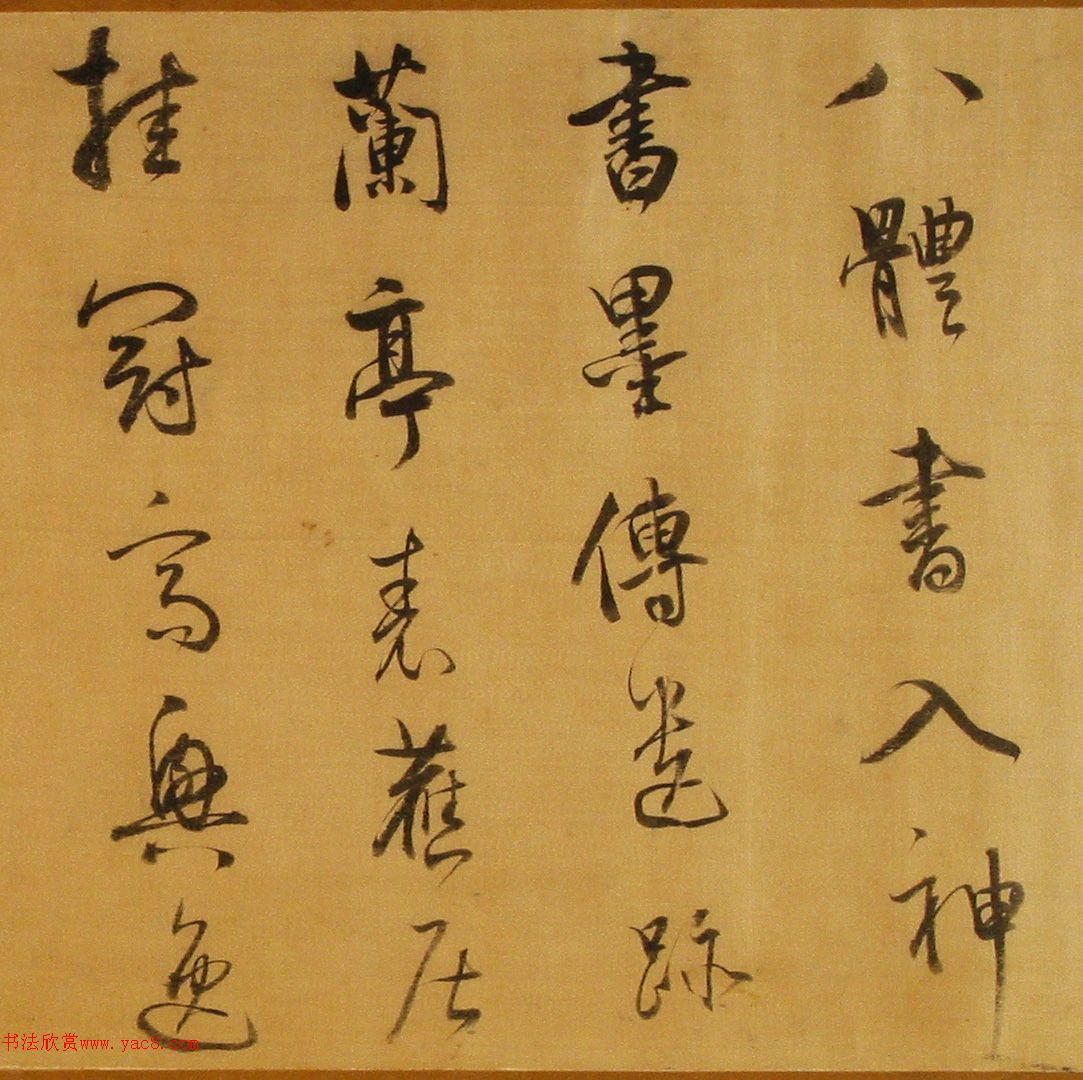 八體書入神
書墨傳遺跡
蘭亭表舊居
挂冠高興逸
书法欣赏www.yac8.com